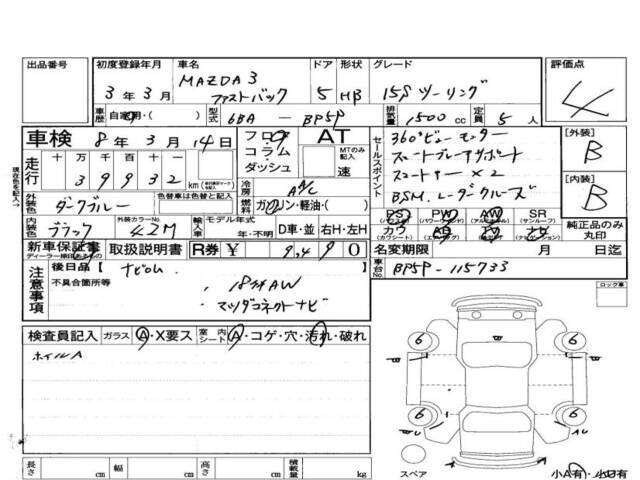 出品番号
初度登録年月
3年3月
車名
MAZDA3
ファストバック
ドア
5
形状
HB
グレード
15Sツーリング
評価点
4
車歴
自家用・( )
型式
6BA-BP5P
排気量
1500cc
定員
5人
車検
8年3月14日
フロア
コラム
ダッシュ
AT
MTのみ記入
速
セールスポイント
360°ビューモニター
スマートブレーキサポート
BSM.レーダークルーズ
[外装]
B
[内装]
B
現在色を記入→
走行
十万
万
千
百
十
39932
km
冷房
A/C
外装色
ダークブルー
色替車は色替と記入
燃料
ガソリン・軽油・( )
内装色
ブラック
外装カラーNo.
42M
輸入車
モデル年式
年・不明
D車・並
右H・左H
PS
PW
AW
SR
カワ
AB
TV
ナビ
純正品のみ
丸印
新車保証書
取扱説明書
R券
¥
0
名変期限
月
日迄
車台No.
BP5P-115733
注意事項
後日品【
不具合箇所等
18インチAW
マツダコネクトナビ
ロック車
検査員記入
ガラス
A・X要ス
室内
シート
A・コゲ・穴・汚れ・破れ
ホイルA
6
6
6
6
B
B
A
スペア
長さ
cm
幅
cm
高さ
cm
積載量
kg
小A有・小U有